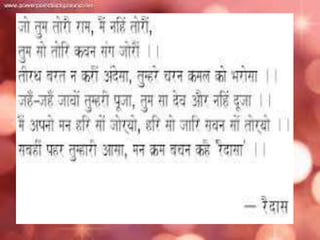 www.powerpointbackground.net
जो तुम तोरौ राम, मैं नहिं तोरौं,
तुम सो तोरि कवन संग जोरौं ।।
तीरथ बरत न करौं अंदेसा, तुम्हरे चरन कमल को भरोसा ।।
जहँ-जहँ जावों तुम्हरी पूजा, तुम सा देव और नहिं दूजा ।।
मैं अपनो मन हरि सों जोर्‌यो, हरि सो जारि सवन सों तोर्‌यो ।।
सवहीं पहर तुम्हारी आसा, मन क्रम बचन कहै 'रैदासा' ।।
— रैदास